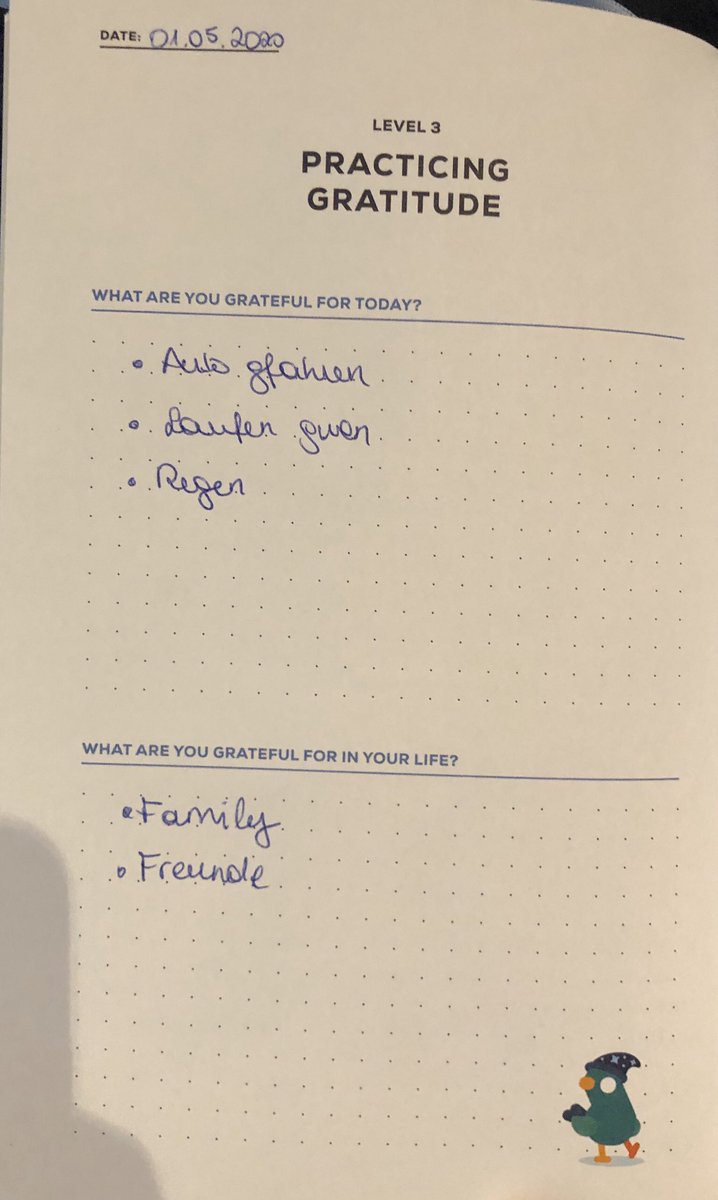 DATE: 01.05.2020
LEVEL 3
PRACTICING
GRATITUDE
WHAT ARE YOU GRATEFUL FOR TODAY?
• Auto gfahren
• Laufen gwen
• Regen
WHAT ARE YOU GRATEFUL FOR IN YOUR LIFE?
• Family
• Freunde